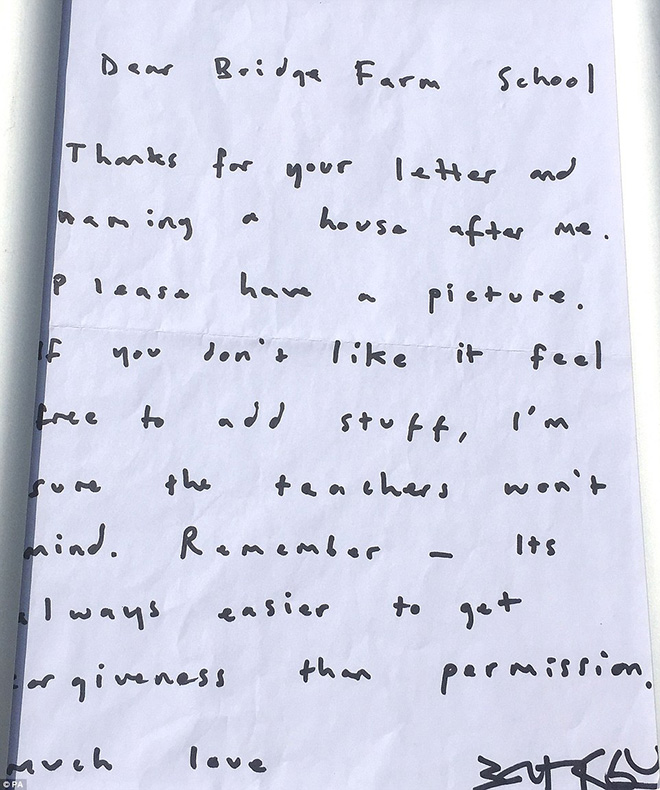 Dear Bridge Farm School
Thanks for your letter and
naming a house after me.
Please have a picture.
If you don't like it feel
free to add stuff, I'm
sure the teachers won't
mind. Remember – Its
always easier to get
forgiveness than permission.
much love
©PA